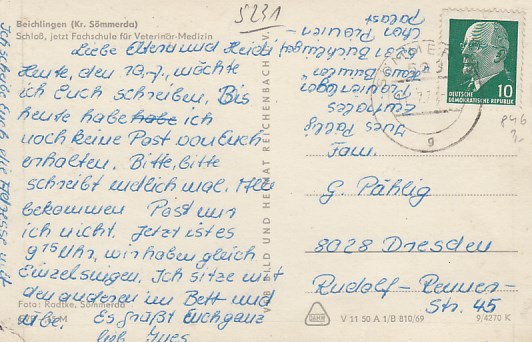 5231
Beichlingen (Kr. Sömmerda)
Schloß, jetzt Fachschule für Veterinär-Medizin
Liebe Eltern und Heidi!
Heute, den 10.7., möchte
ich Euch schreiben. Bis
heute habe habe ich
noch keine Post von Euch
erhalten. Bitte, bitte
schreibt endlich mal. Alle
bekommen Post nur
ich nicht. Jetzt ist es
9 15 Uhr, wir haben gleich
Einzelsingen. Ich sitze mit
den anderen im Bett und
übe. Es grüßt Euch ganz
lieb Ines
Ich schreibe Euch die Adresse mit
Ines Pählig
Zentrales
Pionierlager
BILD UND HEIMAT REICHENBACH
Foto: Radtke, Sömmerda
DEUTSCHE
DEMOKRATISCHE REPUBLIK
10
g
Fam.
G. Pählig
8028 Dresden
Rudolf-Renner-
Str. 45
V 11 50 A 1/B 810/69
9/4270 K